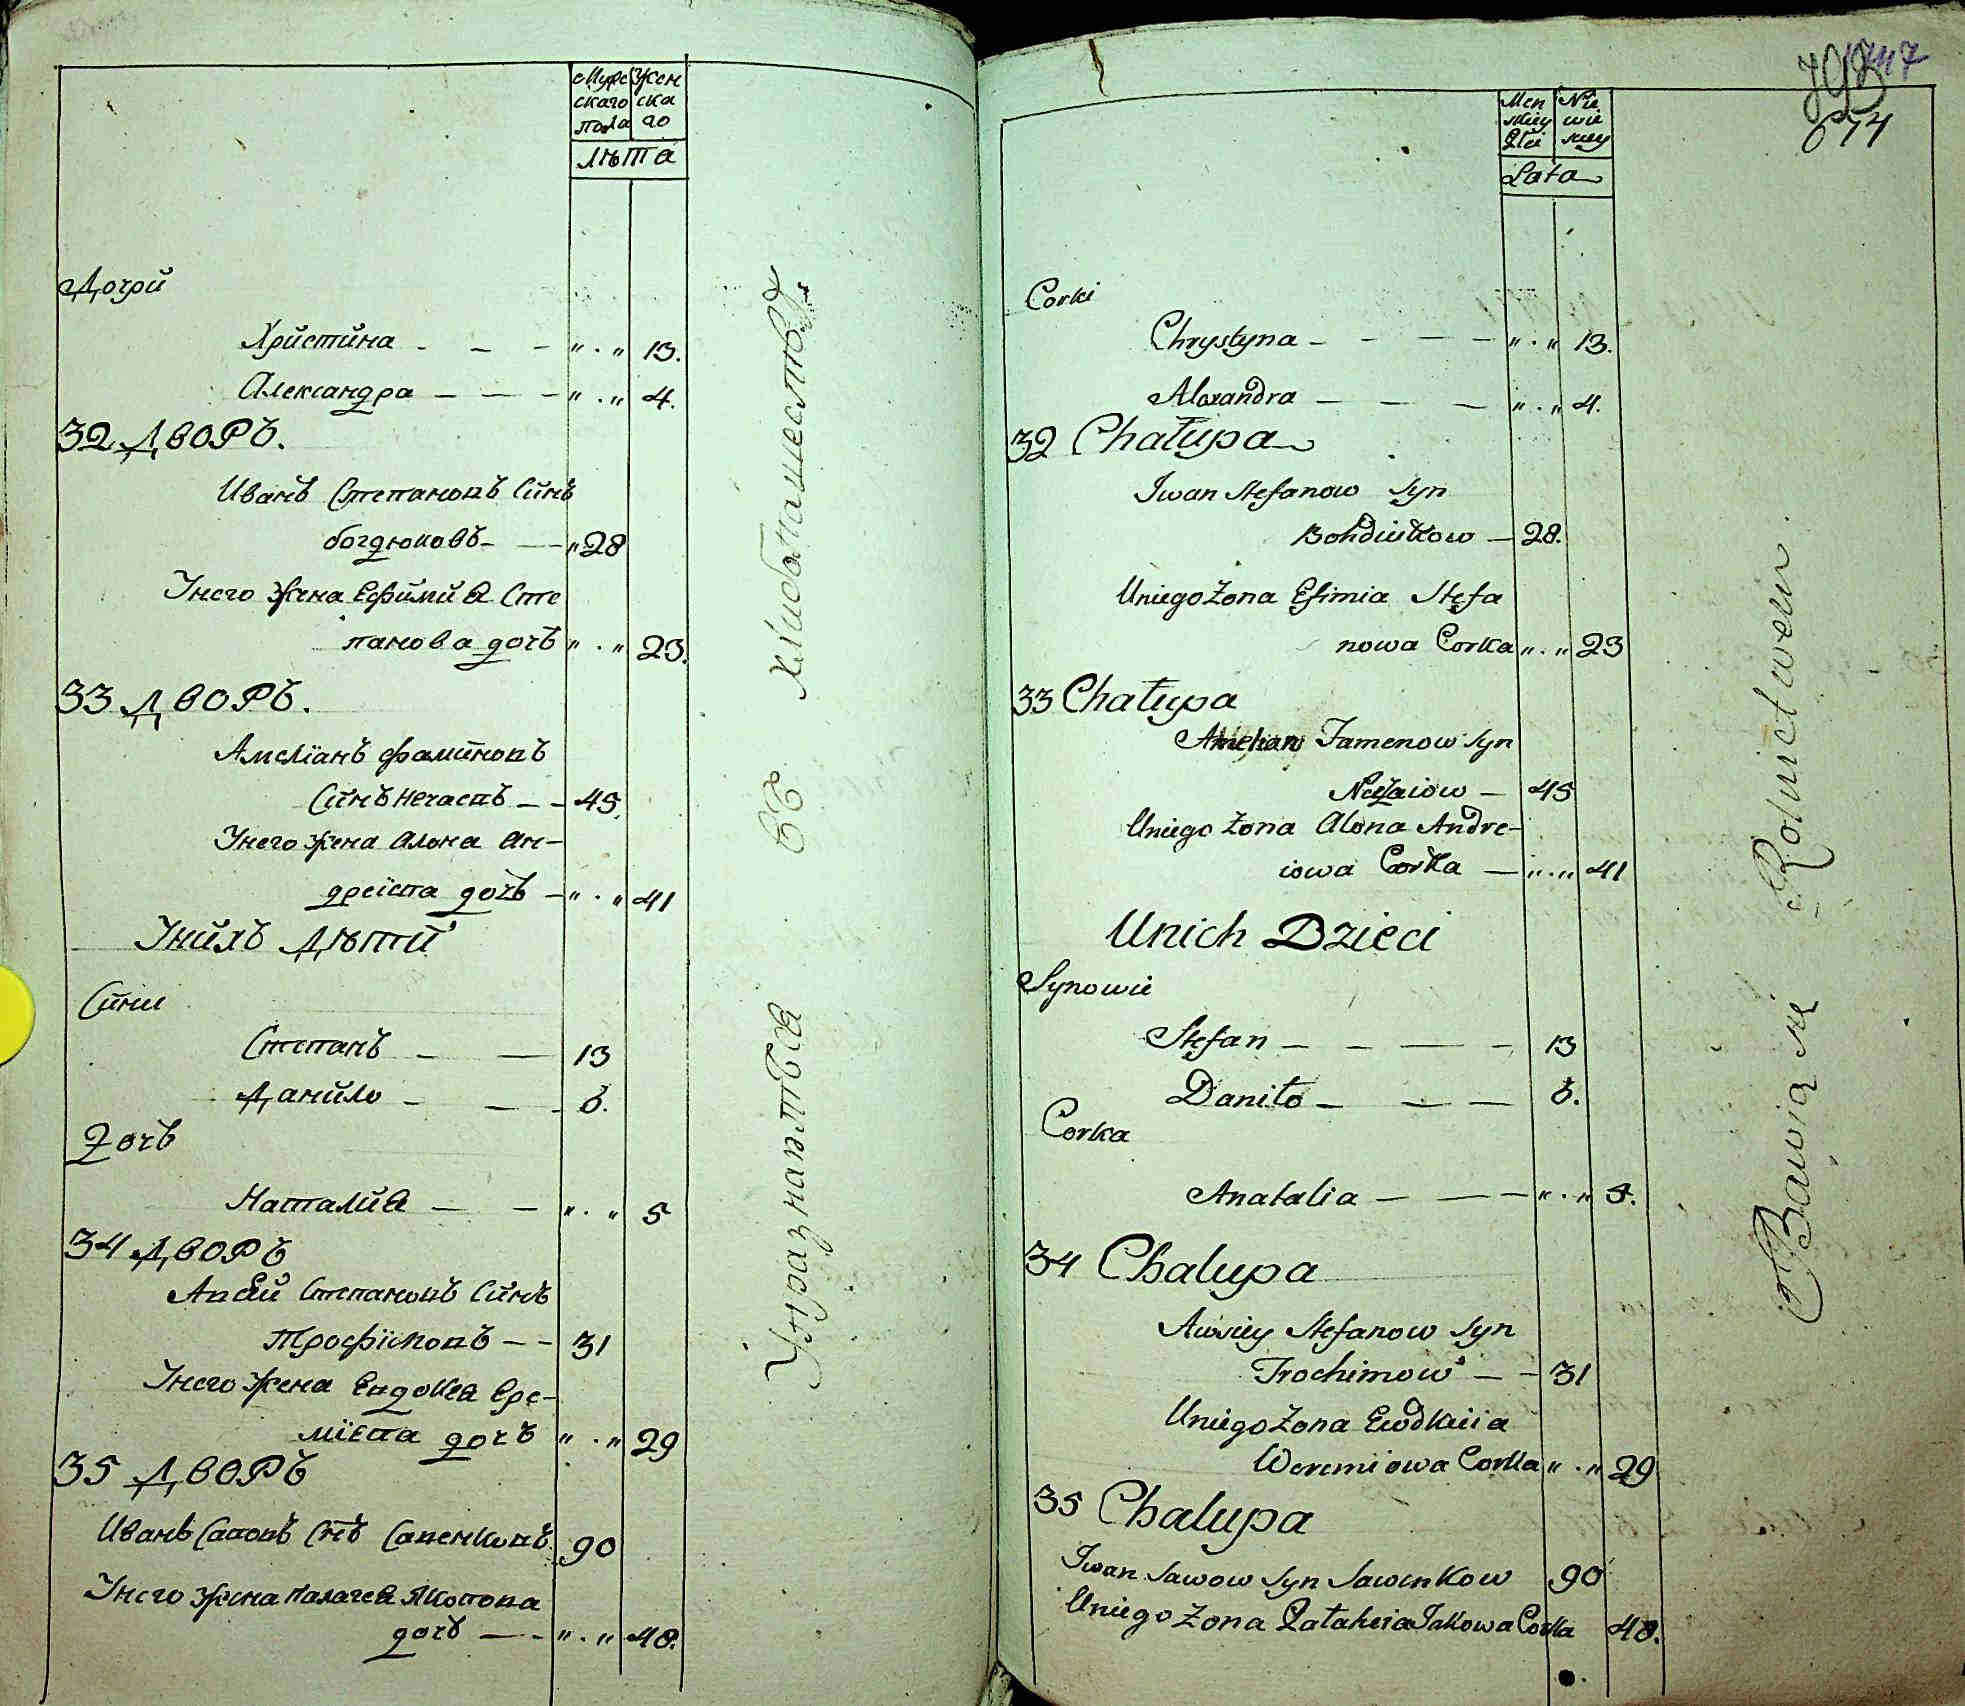 Мужс Жен
скаго ска
пола го
лѣта
Дочрй
Хрйстйна - - - „ . „ 13.
Александра - - - „ . „ 4.
32 ДВОРЪ.
Иванъ Степановъ Сйнъ
богдюковъ - - „ 28
Унего жена Ефймйя Сте
панова дочъ „ . „ 23.
33 ДВОРЪ.
Амелїанъ фамйновъ
Сйнъ Нечаевъ - - 45.
Унего жена Алона Ан-
дреїева дочъ - „ . „ 41
Унйхъ Дѣтй
Сйни
Степанъ - - 13
Данйло - - - 6.
Дочъ
Наталйя - - „ . „ 5
34 ДВОРЪ
Степановъ Сйнъ
Трофїмовъ - - 31
Унего жена Евдокея Ере-
мїева дочъ „ . „ 29
35 ДВОРЪ
Иванъ Савовъ Снъ Савенковъ 90
Унего жена Палагея Яковова
дочъ - - „ . „ 48.
Упразнаются въ хлибопашествѣ
747
674
Men Nie
skiey wie
Płci skiey
Lata
Corki
Chrystyna - - - - „ . „ 13.
Alexandra - - - „ . „ 4.
32 Chałupa
Iwan Stefanow Syn
Bohdiukow - 28.
Uniego Zona Efimia Stefa
nowa Corka „ . „ 23
33 Chałupa
Amelian Famenow Syn
Neczaiow - 45
Uniego Zona Alona Andre-
iowa Corka - „ . „ 41
Unich Dzieci
Synowie
Stefan - - - - 13
Daniło - - - 6.
Corka
Anatalia - - - „ . „ 5.
34 Chalupa
Awsiey Stefanow Syn
Trochimow - - 31
Uniego Zona Ewdkiia
Weremiowa Corka „ . „ 29
35 Chalupa
Iwan Sawow Syn Sawenkow 90
Uniego Zona Pałaheia Jakowa Corka 48.
Bawią się Rolnictwem.